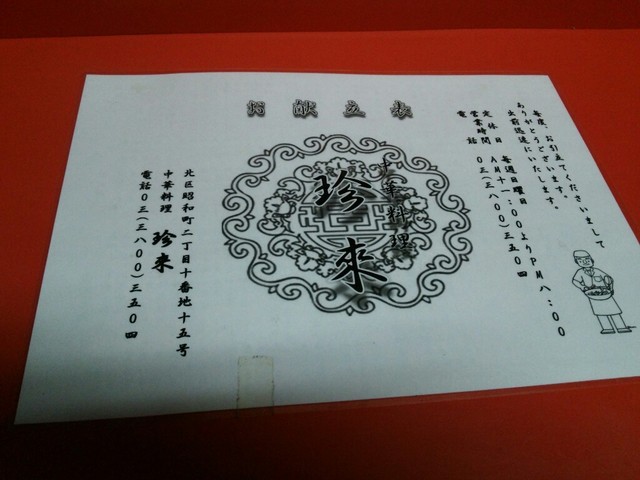 お献立表
毎度、お引立てくださいまして
ありがとうございます。
出前迅速にいたします。
定休日 毎週日曜日
営業時間 AM十一:00よりPM八:00
電話 03(三八00)三五0四
中華料理
珍來
北区昭和町二丁目十番地十五号
中華料理 珍來
電話03(三八00)三五0四